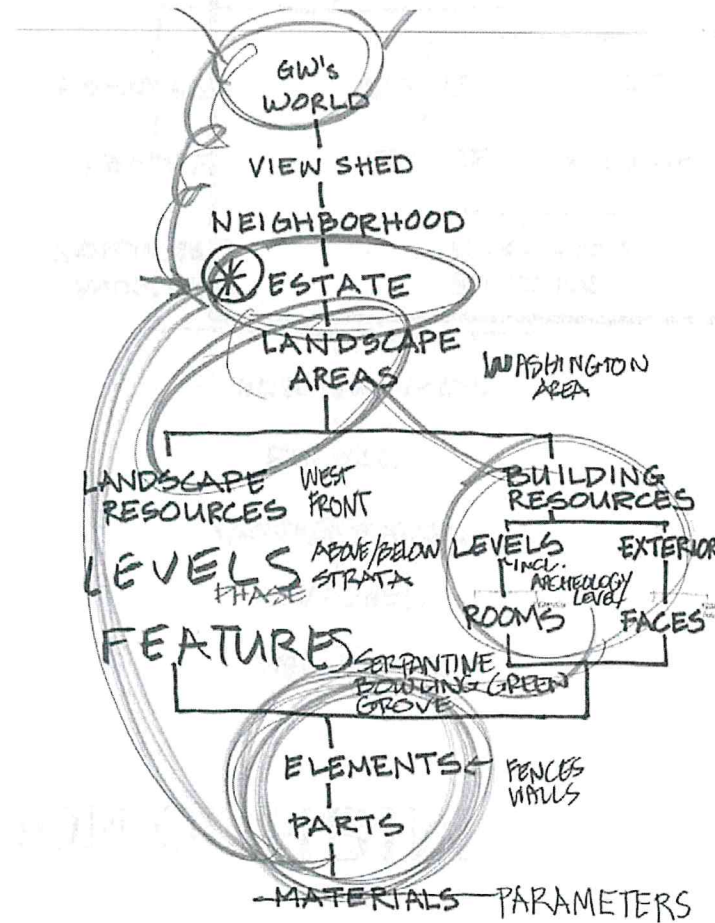 GW's
WORLD
VIEW SHED
NEIGHBORHOOD
ESTATE
LANDSCAPE
AREAS
WASHINGTON
AREA
LANDSCAPE
RESOURCES
WEST
FRONT
BUILDING
RESOURCES
LEVELS
PHASE
ABOVE/BELOW
STRATA
LEVELS
INCL.
ARCHEOLOGY
LEVEL
EXTERIOR
ROOMS
FACES
FEATURES
SERPANTINE
BOWLING GREEN
GROVE
ELEMENTS
FENCES
WALLS
PARTS
MATERIALS
PARAMETERS